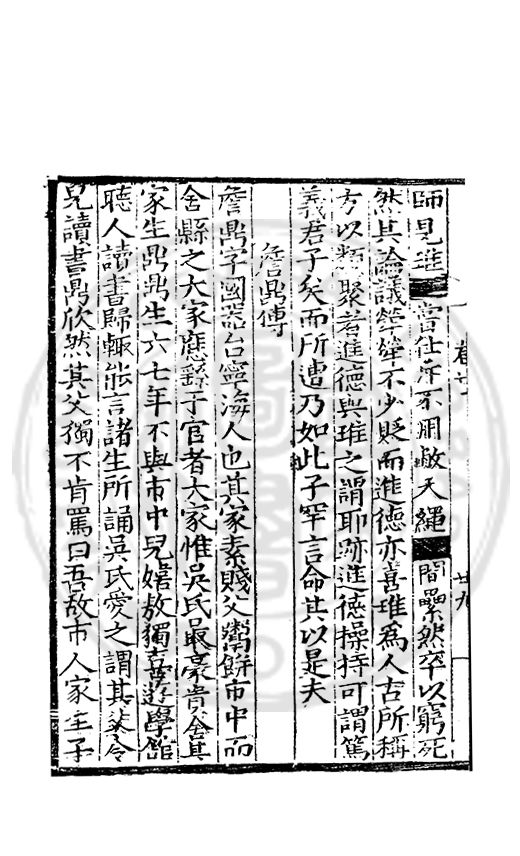 師見進■當仕
然其論議犖犖不少貶而進德亦喜琟為人古所稱
方以類聚者進德與琟之謂耶跡進德操持可謂篤
義君子矣而所遭乃如此子罕言命其以是夫
詹鼎傳
詹鼎字國器台寧海人也其家素賤父鬻餅市中而
舍縣之大家應繇于官者大家惟吳氏最豪貴舍其
家生鼎鼎生六七年不與市中兒嬉敖獨喜遊學館
聽人讀書歸輒能言諸生所誦吳氏愛之謂其父令
兒讀書鼎欣然其父獨不肯罵曰吾故市人家生子